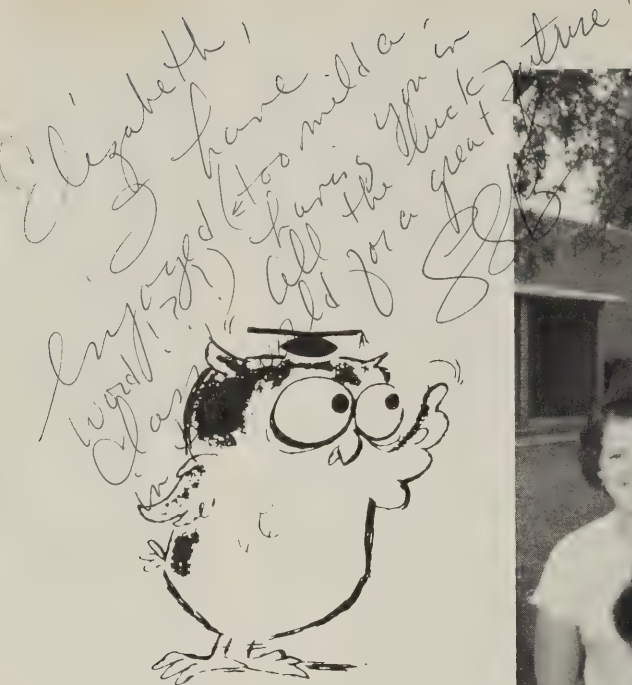 Elizabeth,
I have
enjoyed (too mild a
word!?!?) having you in
class. All the luck
in the world for a great future!